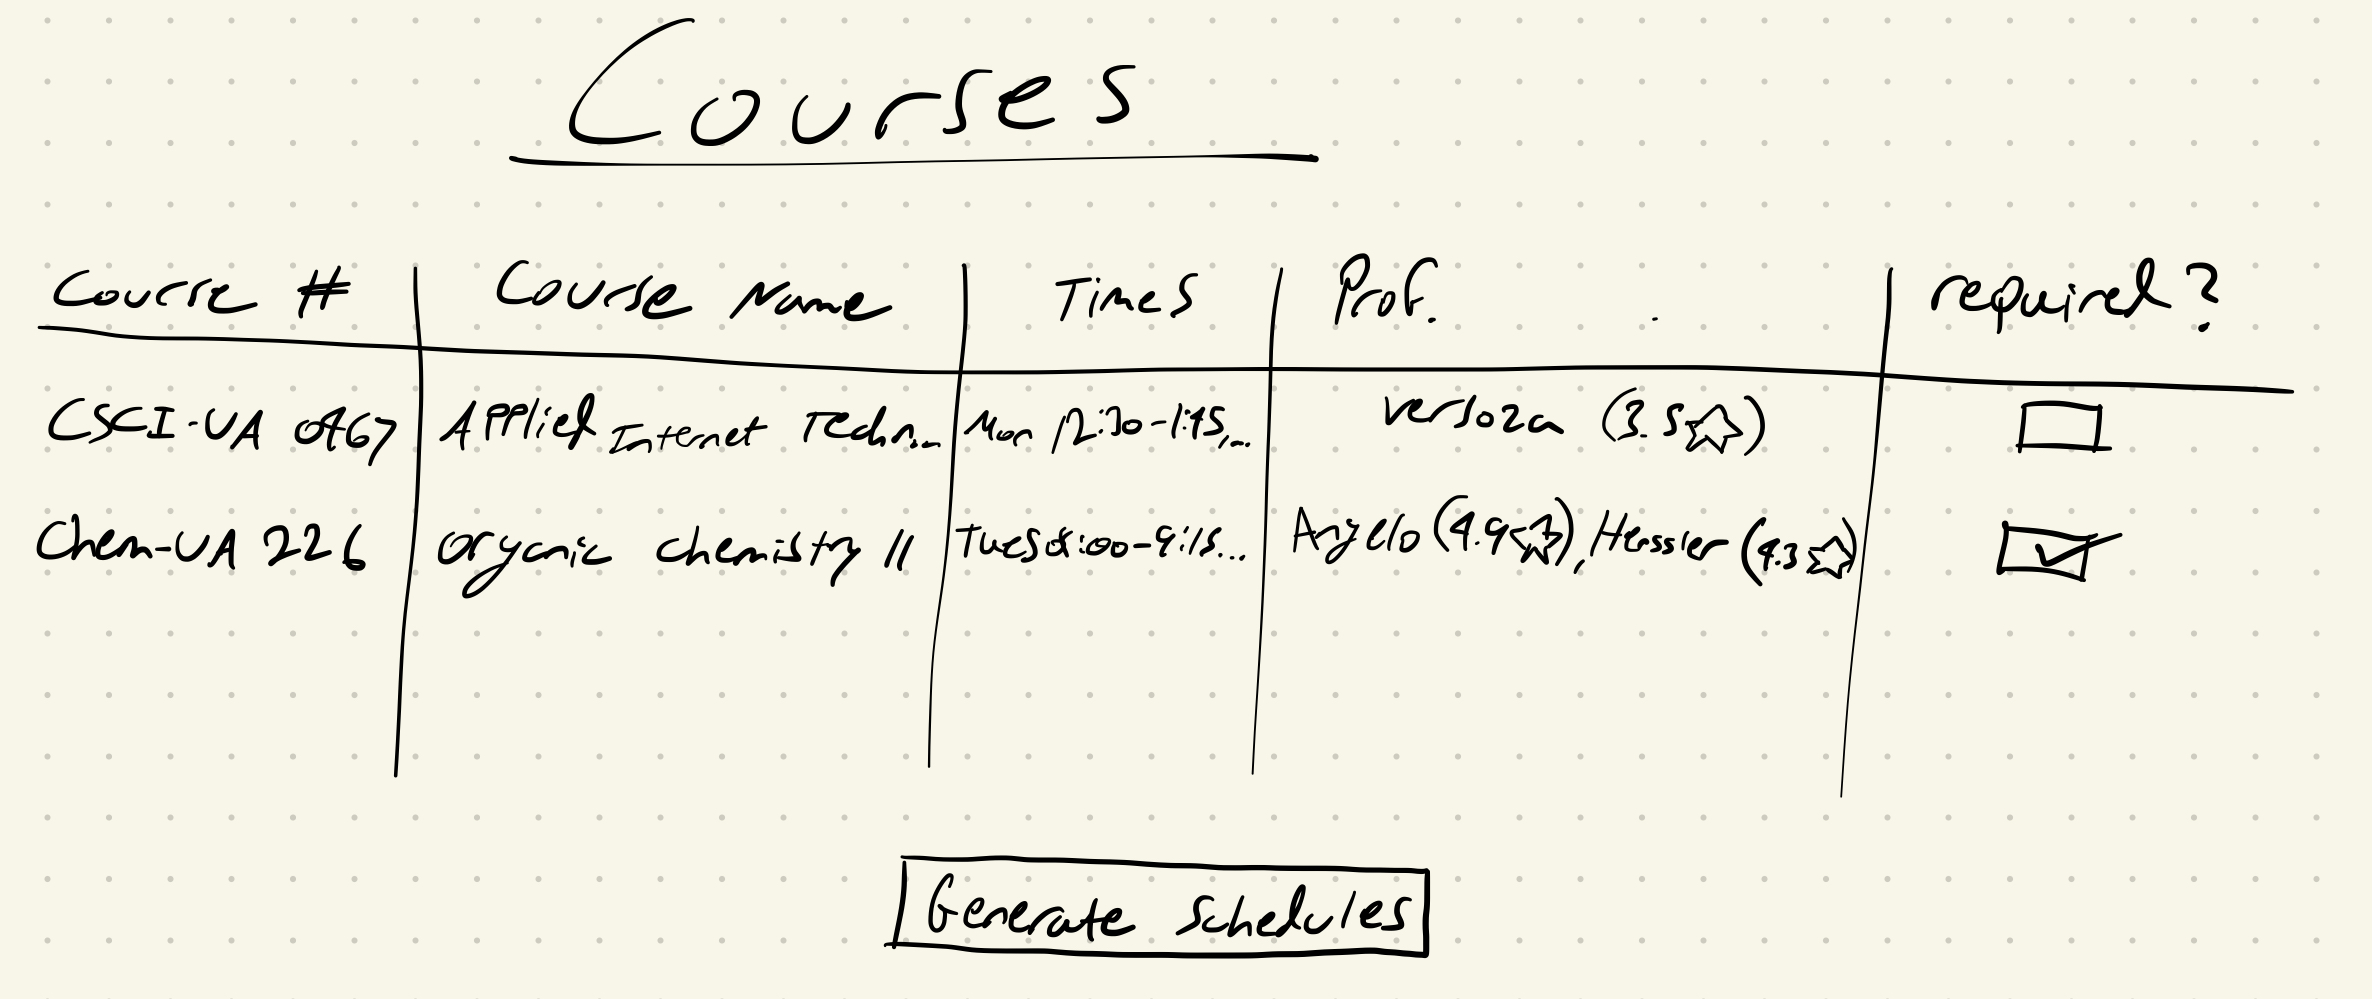 Courses
Course # Course Name Times Prof. required?
CSCI-UA 0467 Applied Internet Techn... Mon 12:30-1:45,... Versoza (3.5☆)
Chem-UA 226 organic chemistry 11 Tues 8:00-9:15... Angelo (4.9☆), Hessler (4.3☆)
Generate Schedules